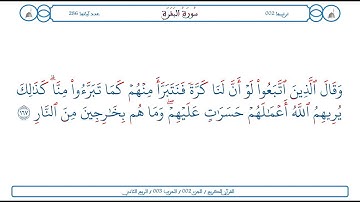 ترتيبها 002
سُورَةُ البَقَرَةِ
عدد آياتها 286
وَقَالَ ٱلَّذِينَ ٱتَّبَعُوا۟ لَوْ أَنَّ لَنَا كَرَّةً فَنَتَبَرَّأَ مِنْهُمْ كَمَا تَبَرَّءُوا۟ مِنَّا ۗ كَذَٰلِكَ
يُرِيهِمُ ٱللَّهُ أَعْمَٰلَهُمْ حَسَرَٰتٍ عَلَيْهِمْ ۖ وَمَا هُم بِخَٰرِجِينَ مِنَ ٱلنَّارِ ١٦٧
القرآن الكريم / الجزء 002 / الحزب 003 / الربع الثاني